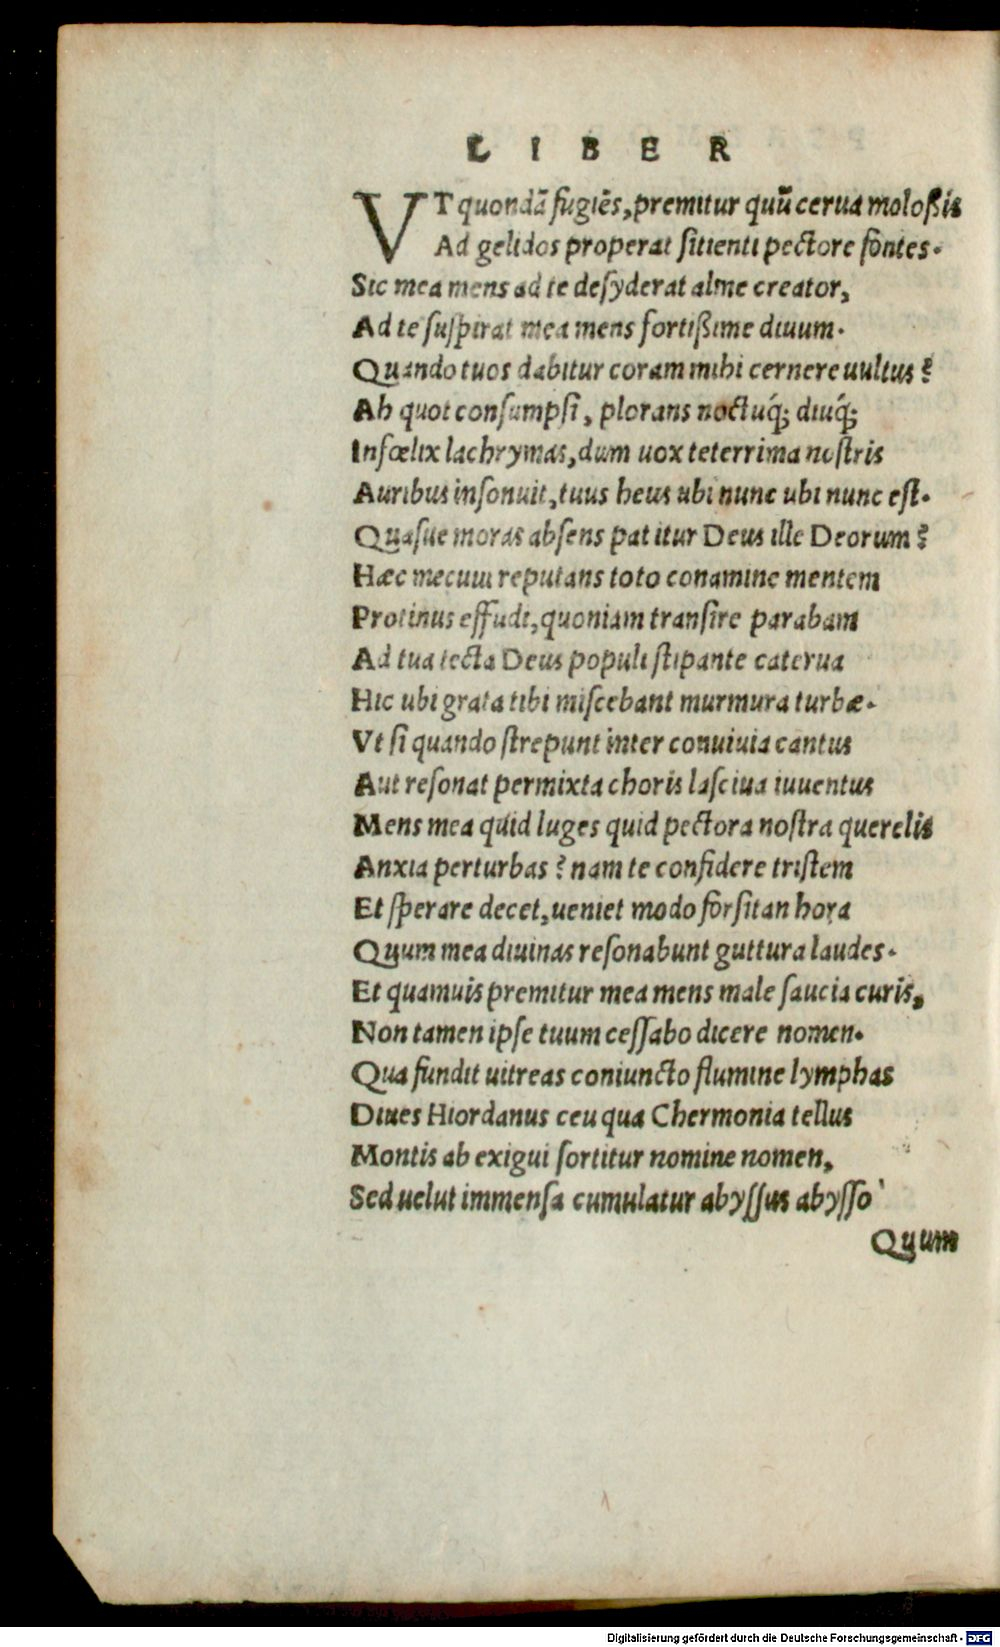 LIBER
VT quondā fugiēs, premitur quū cerua moloßis
Ad gelidos properat sitienti pectore fontes.
Sic mea mens ad te desyderat alme creator,
Ad te suspirat mea mens fortißime diuum.
Quando tuos dabitur coram mihi cernere uultus?
Ah quot consumpsi, plorans noctuq́; diuq́;
Infœlix lachrymas, dum uox teterrima nostris
Auribus insonuit, tuus heus ubi nunc ubi nunc est.
Quasue moras absens patitur Deus ille Deorum?
Hæc mecum reputans toto conamine mentem
Protinus effudi, quoniam transire parabam
Ad tua tecta Deus populi stipante caterua
Hic ubi grata tibi miscebant murmura turbæ.
Vt si quando strepunt inter conuiuia cantus
Aut resonat permixta choris lasciua iuuentus
Mens mea quid luges quid pectora nostra querelis
Anxia perturbas? nam te confidere tristem
Et sperare decet, ueniet modo forsitan hora
Quum mea diuinas resonabunt guttura laudes.
Et quamuis premitur mea mens male saucia curis,
Non tamen ipse tuum cessabo dicere nomen.
Qua fundit uitreas coniuncto flumine lymphas
Diues Hiordanus ceu qua Chermonia tellus
Montis ab exigui sortitur nomine nomen,
Sed uelut immensa cumulatur abyssus abysso
Quum
Digitalisierung gefördert durch die Deutsche Forschungsgemeinschaft - DFG